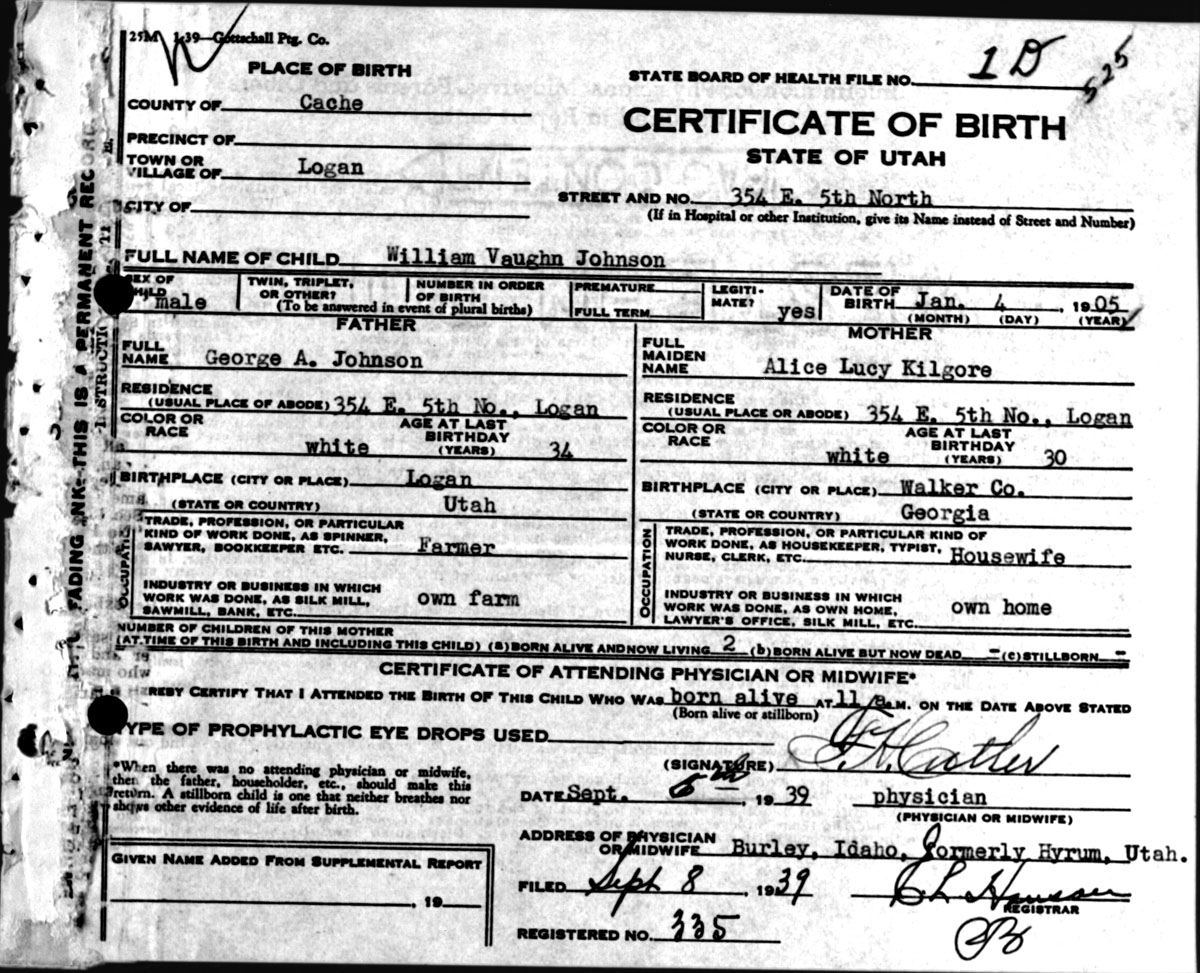 25M 1-39—Gottschall Ptg. Co.
PLACE OF BIRTH
STATE BOARD OF HEALTH FILE NO. 1D 525
COUNTY OF Cache
CERTIFICATE OF BIRTH
PRECINCT OF
STATE OF UTAH
TOWN OR
VILLAGE OF Logan
STREET AND NO. 354 E. 5th North
CITY OF
(If in Hospital or other Institution, give its Name instead of Street and Number)
FULL NAME OF CHILD William Vaughn Johnson
SEX OF
CHILD male
TWIN, TRIPLET,
OR OTHER?
NUMBER IN ORDER
OF BIRTH
(To be answered in event of plural births)
PREMATURE
FULL TERM
LEGITI-
MATE? yes
DATE OF
BIRTH Jan. 4, 1905
(MONTH) (DAY) (YEAR)
FATHER
FULL
NAME George A. Johnson
RESIDENCE
(USUAL PLACE OF ABODE) 354 E. 5th No., Logan
COLOR OR
RACE white
AGE AT LAST
BIRTHDAY
(YEARS) 34
BIRTHPLACE (CITY OR PLACE) Logan
(STATE OR COUNTRY) Utah
OCCUPATION
TRADE, PROFESSION, OR PARTICULAR
KIND OF WORK DONE, AS SPINNER,
SAWYER, BOOKKEEPER ETC. Farmer
INDUSTRY OR BUSINESS IN WHICH
WORK WAS DONE, AS SILK MILL,
SAWMILL, BANK, ETC. own farm
MOTHER
FULL
MAIDEN
NAME Alice Lucy Kilgore
RESIDENCE
(USUAL PLACE OR ABODE) 354 E. 5th No., Logan
COLOR OR
RACE white
AGE AT LAST
BIRTHDAY
(YEARS) 30
BIRTHPLACE (CITY OR PLACE) Walker Co.
(STATE OR COUNTRY) Georgia
OCCUPATION
TRADE, PROFESSION, OR PARTICULAR KIND OF
WORK DONE, AS HOUSEKEEPER, TYPIST,
NURSE, CLERK, ETC. Housewife
INDUSTRY OR BUSINESS IN WHICH
WORK WAS DONE, AS OWN HOME,
LAWYER'S OFFICE, SILK MILL, ETC. own home
NUMBER OF CHILDREN OF THIS MOTHER
(AT TIME OF THIS BIRTH AND INCLUDING THIS CHILD) (a) BORN ALIVE AND NOW LIVING 2 (b) BORN ALIVE BUT NOW DEAD - (c) STILLBORN -
CERTIFICATE OF ATTENDING PHYSICIAN OR MIDWIFE*
HEREBY CERTIFY THAT I ATTENDED THE BIRTH OF THIS CHILD WHO WAS born alive AT 11 a.M. ON THE DATE ABOVE STATED
(Born alive or stillborn)
TYPE OF PROPHYLACTIC EYE DROPS USED
(SIGNATURE)
*When there was no attending physician or midwife,
then the father, householder, etc., should make this
return. A stillborn child is one that neither breathes nor
shows other evidence of life after birth.
DATE Sept. 1939 physician
(PHYSICIAN OR MIDWIFE)
ADDRESS OF PHYSICIAN
OR MIDWIFE Burley, Idaho, formerly Hyrum, Utah.
GIVEN NAME ADDED FROM SUPPLEMENTAL REPORT
, 19
FILED Sept 8, 1939
REGISTRAR
REGISTERED NO. 335
FADING INK--THIS IS A PERMANENT RECORD